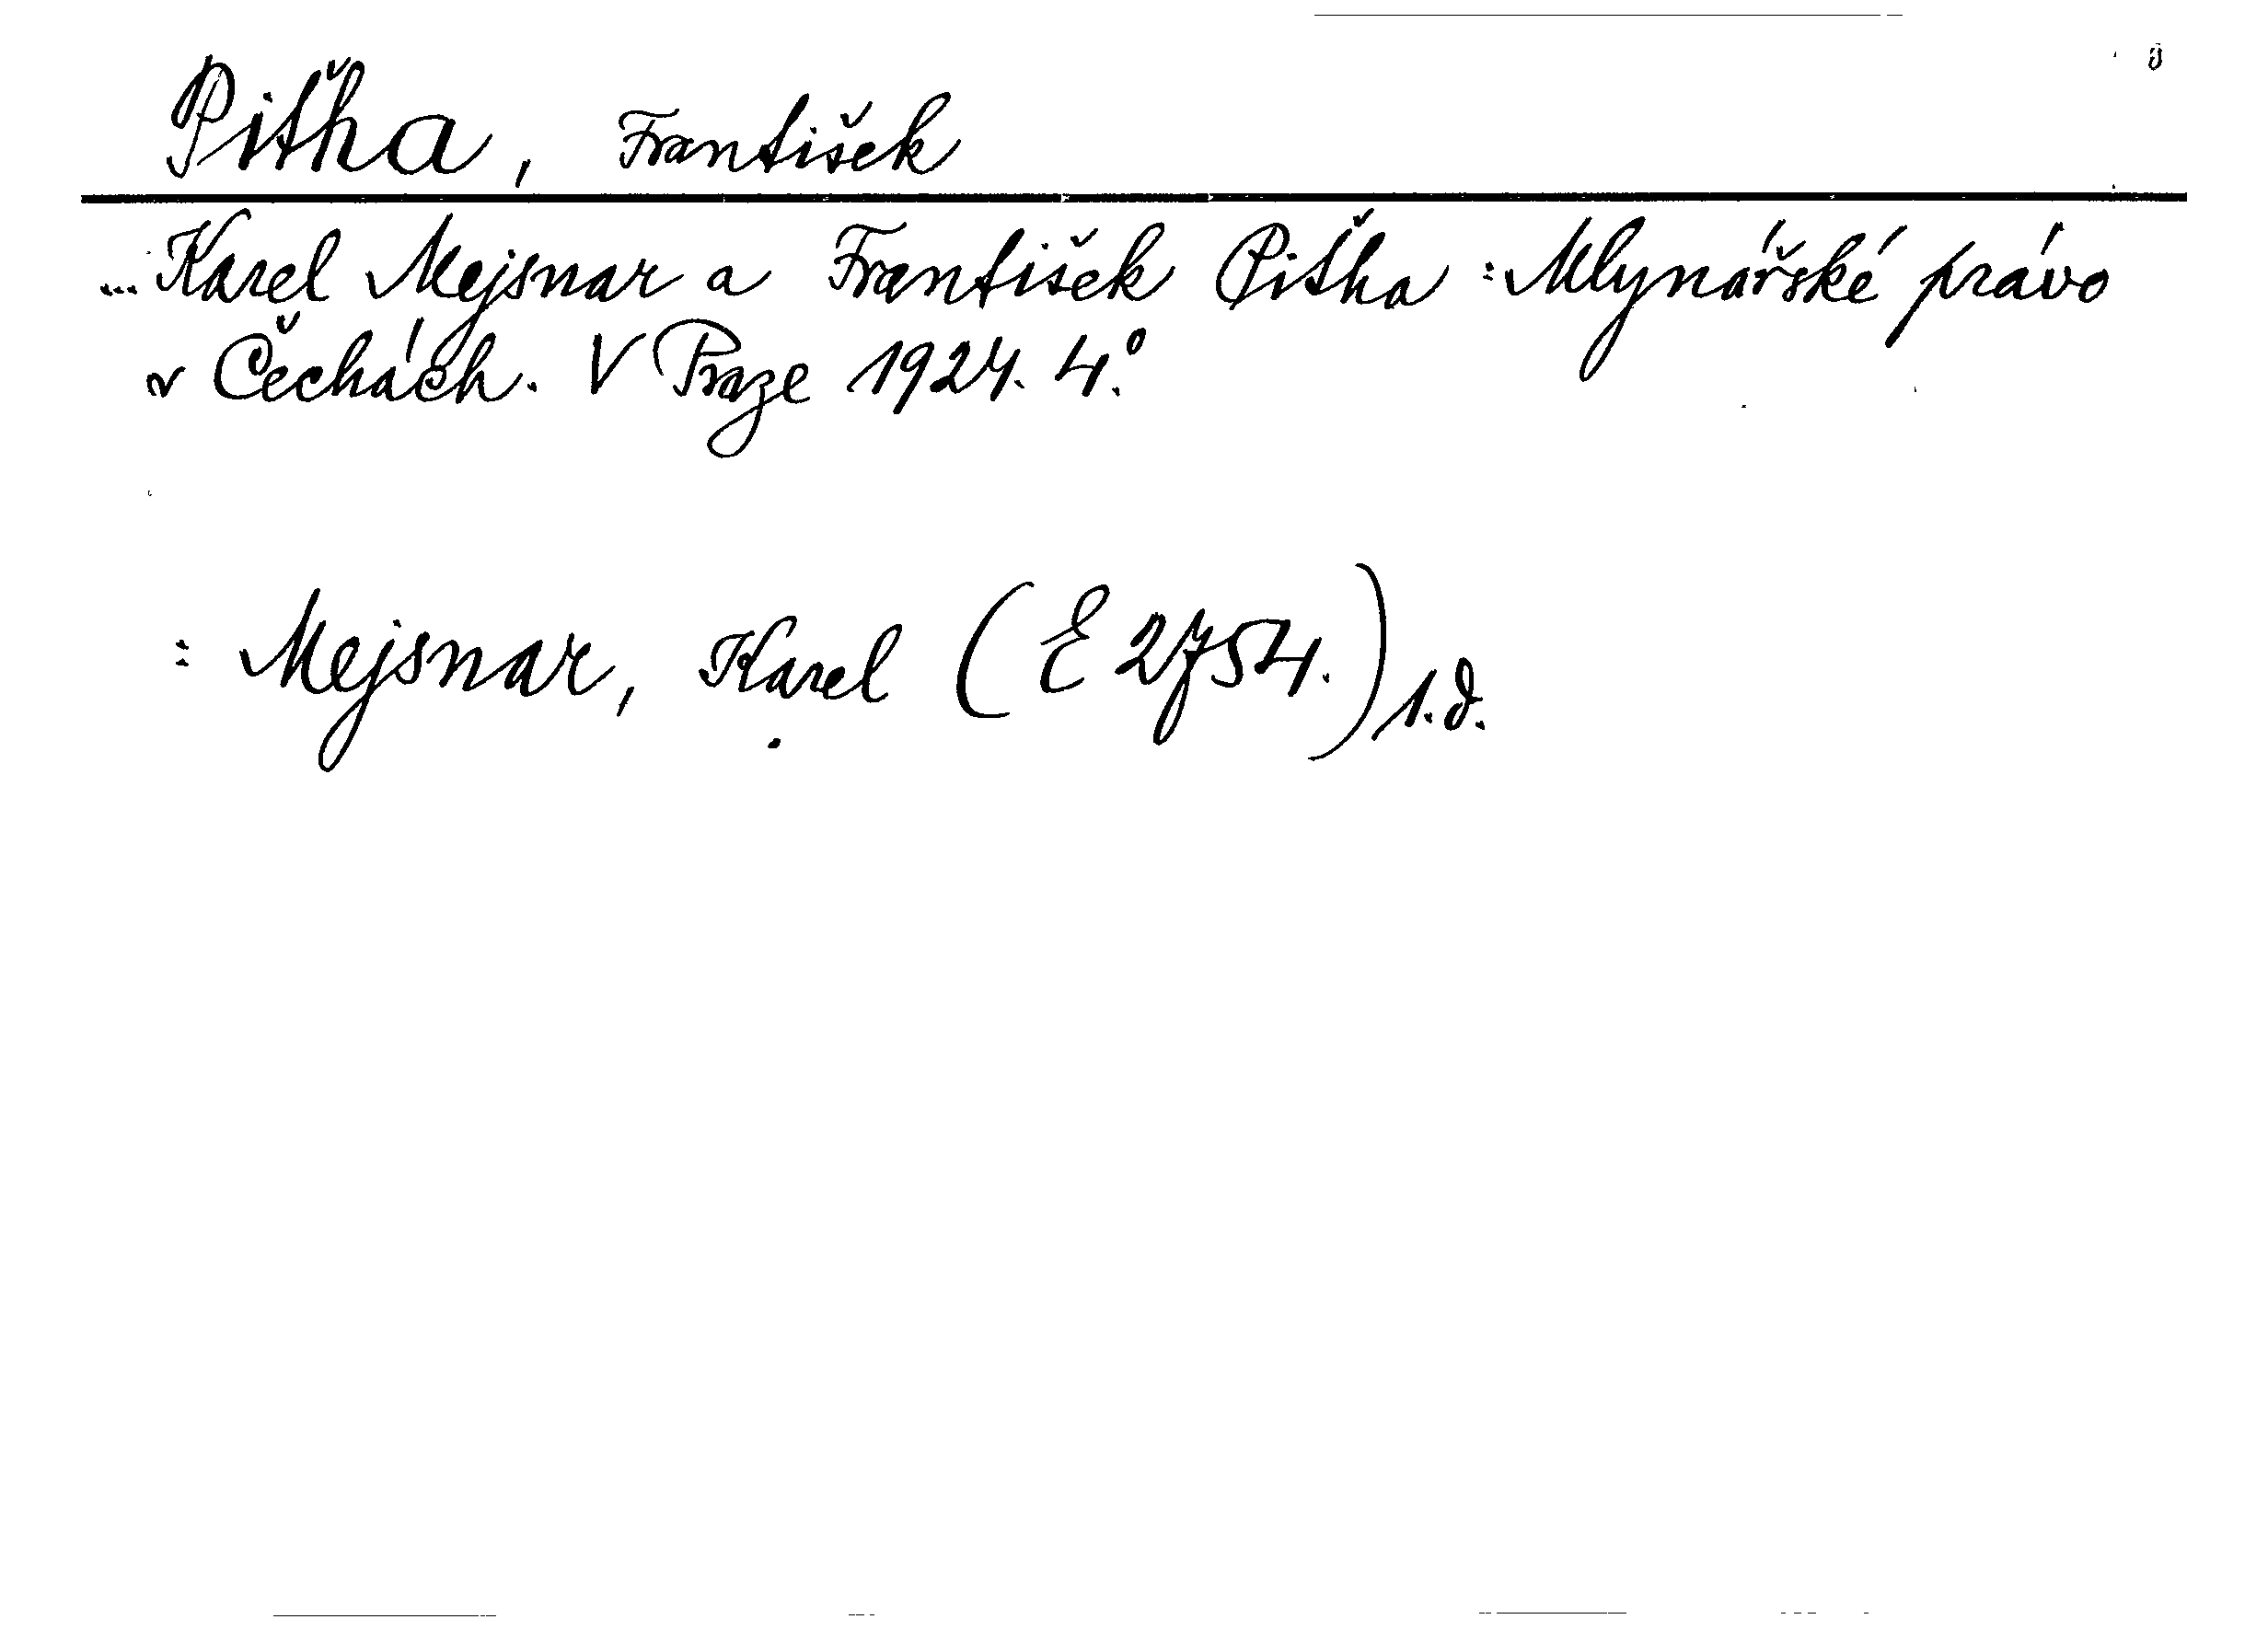 Pitřha, František
... Karel Mejsnar a František Pitřha : Mlynářské právo
v Čechách. V Praze 1924. 4.°
: Mejsnar, Karel (E 2754.) 1.d.